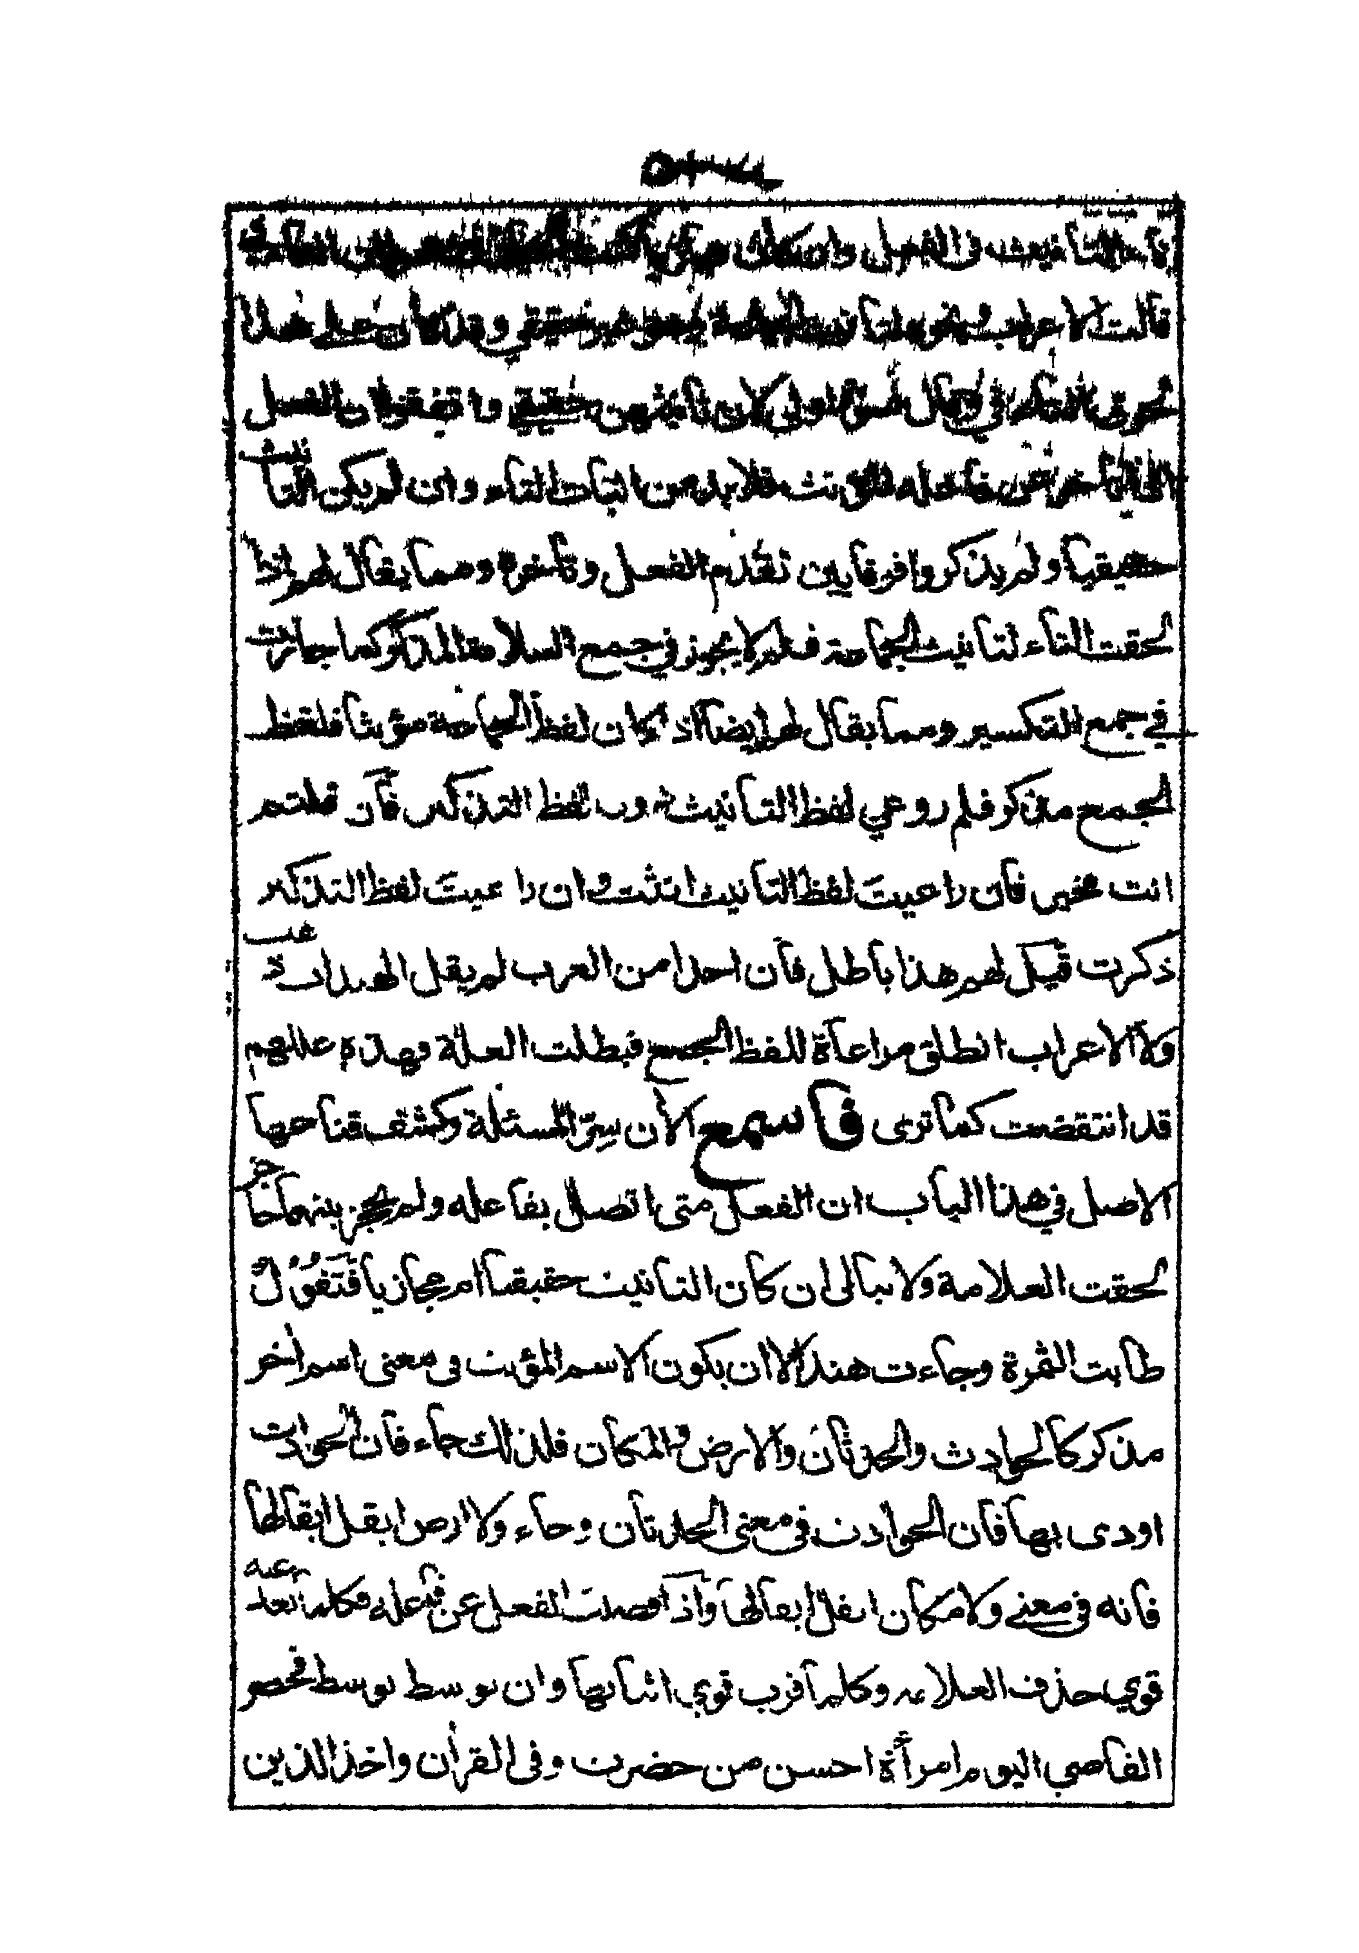 تاء التأنيث في الفعل وان كان
قالت الاعراب ونحوه لتأنيث الجماعة وهو غير حقيقي وقد كان على هذا
نحوى في لان تأنيثهن حقيقي واتفقوا ان الفعل
اذا تأخر عن فاعله المؤنث فلا بد من اثبات التاء وان لم يكن التأنيث
حقيقيا ولم يذكروا فرقا بين تقدم الفعل وتأخره ومما يقال لهم اذا
لحقت التاء لتأنيث الجماعة فلم لا يجوز في جمع السلامة المذكر كما جازت
في جمع التكسير ومما يقال لهم ايضا اذا كان لفظ الجماعة مؤنثا فلفظ
الجمع مذكر فلم روعي لفظ التأنيث دون لفظ التذكير فأن قلتم
انت مخير فان راعيت لفظ التأنيث انثت وان راعيت لفظ التذكير
ذكرت قيل لهم هذا باطل فأن احدا من العرب لم يقل الهندات ذهب
ولا الاعراب انطلق مراعاة للفظ الجمع فبطلت العلة وهذه عللهم
قد انتقضت كما ترى فاسمع الأن سِرّ المسئلة وكشف قناعها
الاصل في هذا الباب ان الفعل متى اتصل بفاعله ولم يحجز بينهما حاجز
لحقت العلامة ولا نبالى ان كان التأنيث حقيقيا ام مجازيا فَتَقُوْلُ
طابت الثمرة وجاءت هند الا ان يكون الاسم المؤنث في معنى اسم أخر
مذكر كالحوادث والحدثان والارض والمكان فلذلك جاء فان الحوادث
اودى بها فان الحوادث في معنى الحدثان وجاء ولا ارض ابقل ابقالها
فانه في معنى ولا مكان ابقل ابقالها واذا فصلت الفعل عن فاعله فكلما بعد عنه
قوي حذف العلامة وكلما قرب قوي اثباتها وان توسط توسط فحضر
القاضي اليوم امرأة احسن من حضرت وفى القرأن واخذ الذين